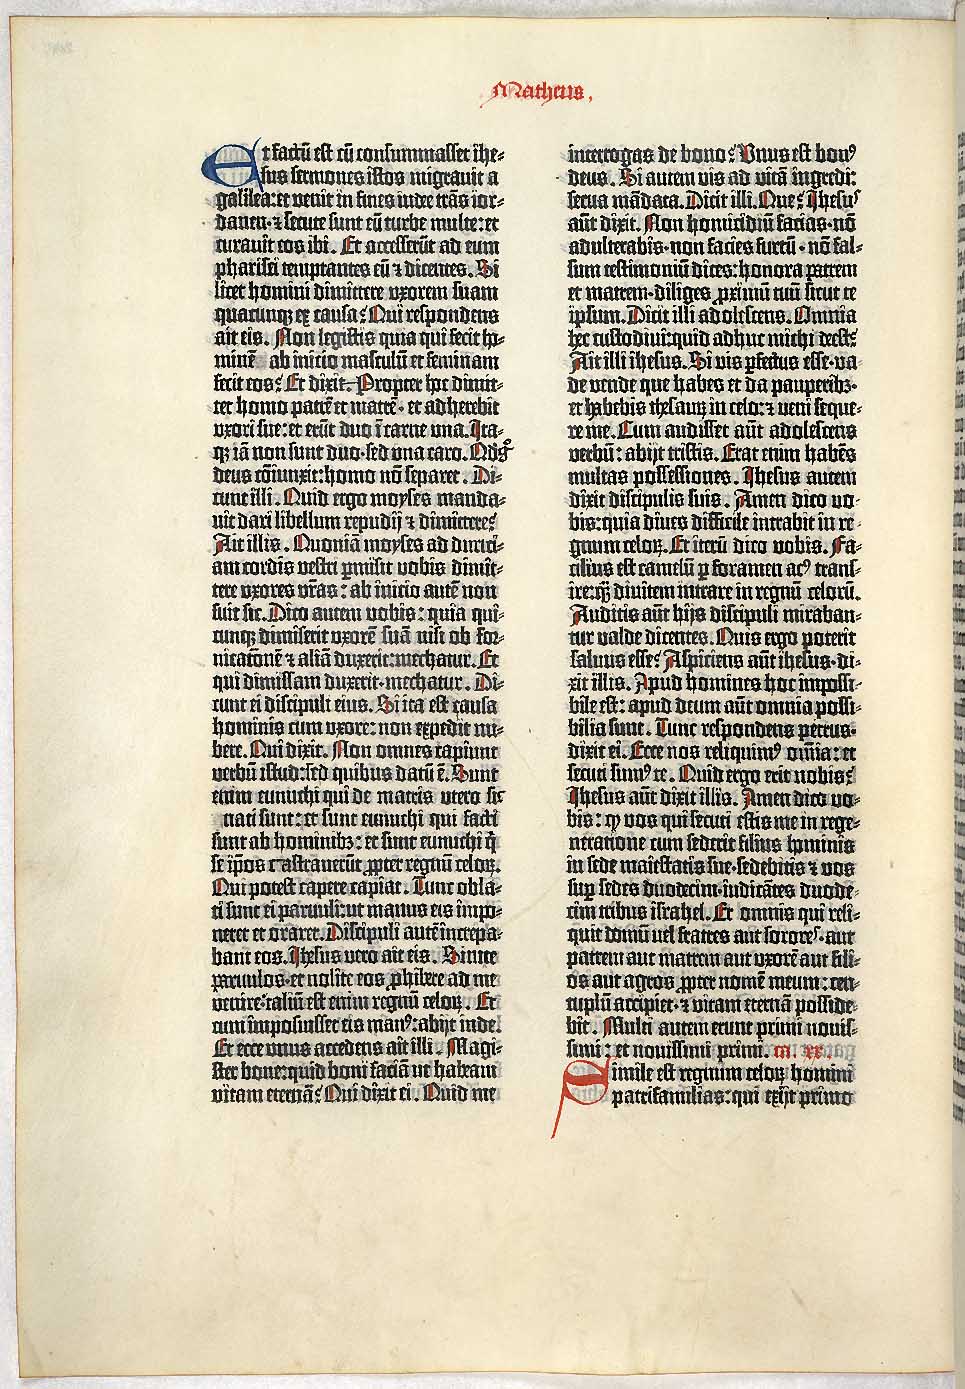 Matheus.
Et factū est cū consummasset ihe-
sus sermones istos migravit a
galilea: et venit in fines iudee trās ior-
danen· ⁊ secute sunt eū turbe multe: et
curavit eos ibi. Et accesserūt ad eum
pharisei temptantes eū ⁊ dicentes. Si
licet homini dimittere uxorem suam
quacunqꝫ ex causa? Qui respondens
ait eis. Non legistis quia qui fecit ho-
minē ab inicio masculū et feminam
fecit eos? Et dixit. Propter hoc dimit-
tet homo patrē et matrē· et adherebit
uxori sue: et erūt duo ī carne una. Ita-
qꝫ iā non sunt duo· sed una caro. Qd̄ gͦ
deus cōiunxit: homo nō separet. Di-
cunt illi. Quid ergo moyses manda-
vit dari libellum repudij ⁊ dimittere?
Ait illis. Quoniā moyses ad durici-
am cordis vestri ꝑmisit vobis dimit-
tere uxores vr̄as: ab inicio autē non
fuit sic. Dico autem vobis: quia qui-
cunqꝫ dimiserit uxorē suā nisi ob for-
nicationē ⁊ aliā duxerit: mechatur. Et
qui dimissam duxerit· mechatur. Di-
cunt ei discipuli eius. Si ita est causa
hominis cum uxore: non expedit nu-
bere. Qui dixit. Non omnes capiunt
verbū istud: sed quibus datū ē. Sunt
enim eunuchi qui de matris utero sic
nati sunt: et sunt eunuchi qui facti
sunt ab hominibꝫ: et sunt eunuchi q̄
se ip̄os castraverūt ꝓpter regnū celoꝝ.
Qui potest capere capiat. Tunc obla-
ti sunt ei parvuli: ut manus eis impo-
neret et oraret. Discipuli autē increpa-
bant eos. Ihesus vero ait eis. Sinite
parvulos· et nolite eos ꝓhibere ad me
venire: taliū est enim regnū celoꝝ. Et
cum imposuisset eis manꝰ: abijt inde.
Et ecce unus accedens ait illi. Magi-
ster bone: quid boni faciā ut habeam
vitam eternā? Qui dixit ei. Quid me
interrogas de bono? Unus est bonꝰ
deus. Si autem vis ad vitā ingredi:
serva mādata. Dicit illi. Que? Ihesus
aūt dixit. Non homicidiū facias· nō
adulterabis· non facies furtū· nō fal-
sum testimoniū dices: honora patrem
et matrem· diliges ꝓximū tuū sicut te
ipsum. Dicit illi adolescens. Omnia
hec custodivi: quid adhuc michi deest?
Ait illi ihesus. Si vis ꝑfectus esse· va-
de vende que habes et da pauperibꝫ·
et habebis thesauꝝ in celo: ⁊ veni seque-
re me. Cum audisset aūt adolescens
verbū: abijt tristis. Erat enim habēs
multas possessiones. Ihesus autem
dixit discipulis suis. Amen dico vo-
bis: quia dives difficile intrabit in re-
gnum celoꝝ. Et iterū dico vobis. Fa-
cilius est camelū ꝑ foramen acꝰ trans-
ire: qꝫ̄ divitem intrare in regnū celorū.
Auditis aūt hijs discipuli miraban-
tur valde dicentes. Quis ergo poterit
salvus esse? Aspiciens aūt ihesus· di-
xit illis. Apud homines hoc impossi-
bile est: apud deum aūt omnia possi-
bilia sunt. Tunc respondens petrus·
dixit ei. Ecce nos reliquimꝰ om̄ia: et
secuti sumꝰ te. Quid ergo erit nobis?
Ihesus aūt dixit illis. Amen dico vo-
bis: ꝙ vos qui secuti estis me in rege-
neratione cum sederit filius hominis
in sede maiestatis sue· sedebitis ⁊ vos
suꝑ sedes duodecim· iudicātes duode-
cim tribus israhel. Et omnis qui reli-
quit domū vel fratres aut sorores· aut
patrem aut matrem aut uxorē aut fili-
os aut agros ꝓpter nomē meum: cen-
tuplū accipiet· ⁊ vitam eternā posside-
bit. Multi autem erunt primi novis-
simi: et novissimi primi. m. xx.
Simile est regnum celoꝝ homini
patrifamilias: qui exijt primo